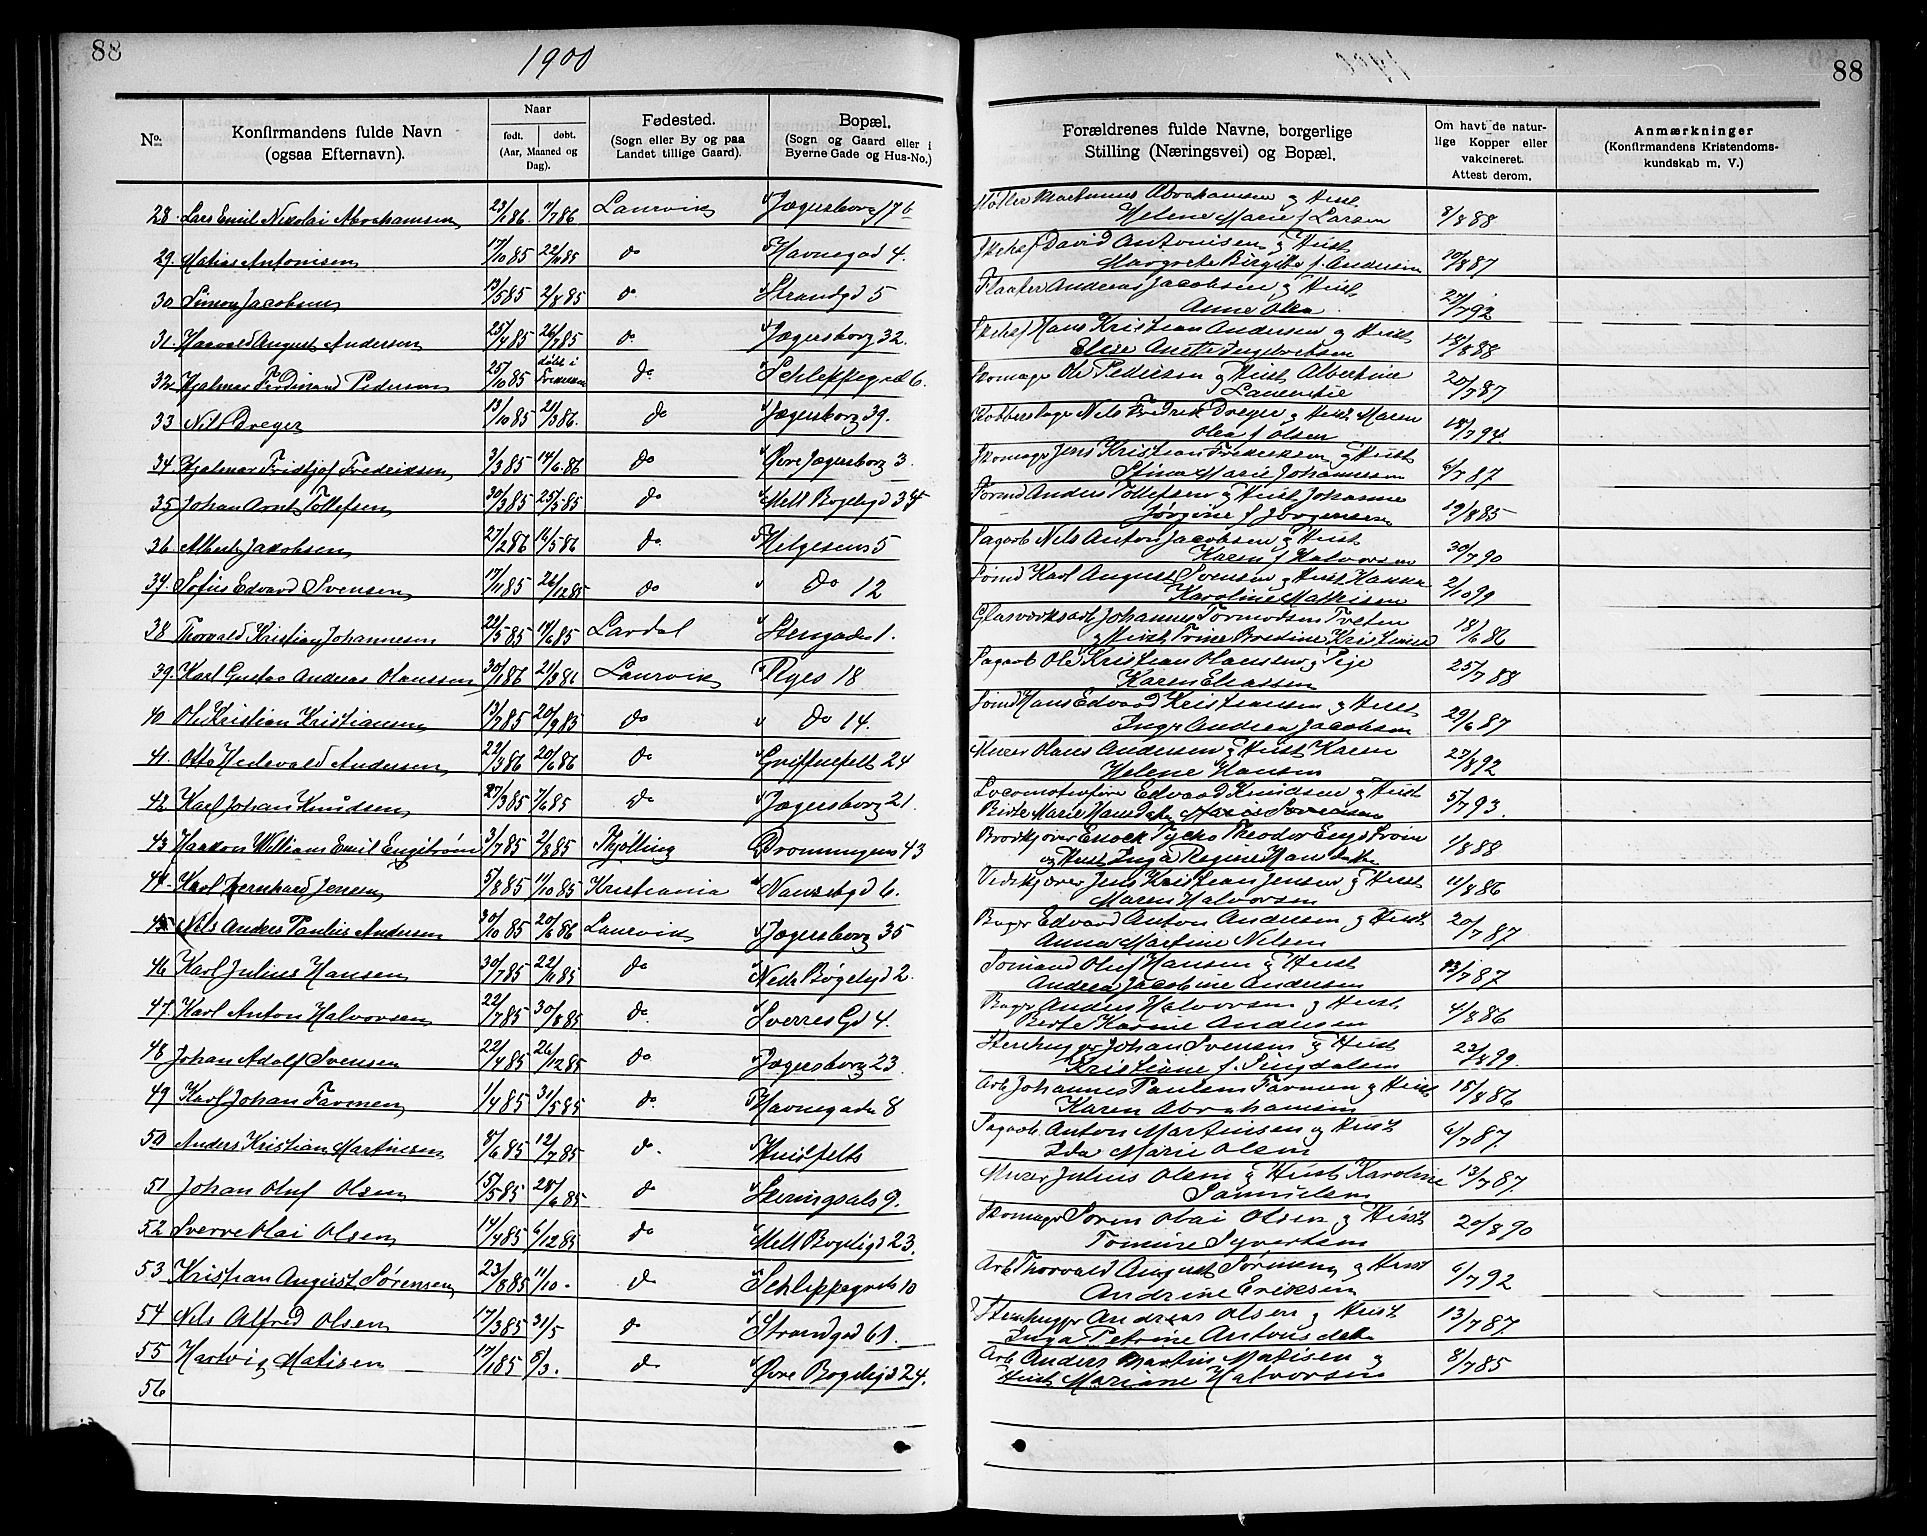 88
1900
88
No.
Konfirmandens fulde Navn
(ogsaa Efternavn).
Naar
født.
døbt.
(Aar, Maaned og
Dag).
Fødested.
(Sogn eller By og paa
Landet tillige Gaard).
Bopæl.
(Sogn og Gaard eller i
Byerne Gade og Hus-No.)
Forældrenes fulde Navne, borgerlige
Stilling (Næringsvei) og Bopæl.
Om havt de natur-
lige Kopper eller
vakcineret.
Attest derom.
Anmærkninger
(Konfirmandens Kristendoms-
kundskab m. V.)
28. Lars Emil Nikolai Abrahamsen 23/1 86. 11/7 86 Laurvik Jægersborg 17 b Martinius Abrahamsen og Hust. 9/8 88
Helene Marie f. Larsen
29. Matias Antonisen 17/10 85 22/11 85 do Havnegad 4. David Antonisen og Hust 10/8 87
Margrete Birgitte f. Andersen
30 Simon Jacobsen 13/5 85 2/8 85 do Strandgd 5 Flaater Andreas Jacobsen og Hust 27/7 92
Anne Olea
31. Haavald August Andersen 25/4 85 26/7 85 do Jægersborg 32. Hans Kristian Andersen og Hust 18/8 88
Elise Anette Ingebretsen
32 Hjalmar Ferdinand Pedersen 25/10 85 døbt i Fredriksv do Schleppegrels 6. Skomager Ole Pedersen og Hust Albertine 20/7 87
Laurentie
33 Nils Dreyer 13/10 85 21/3 86. do Jægersborg 39. Kobberslager Nils Fredrik Dreyer og Hust. Maren 18/7 94
Olea f Olsen
34 Hjalmar Fridtjof Fredriksen 3/3 85 14/6 86 do Øvre Jægersborg 3. Skomager Jens Kristian Fredriksen og Hust 6/7 87
Stina Marie Johannesen
35 Johan Arnt Tollefsen 30/3 85 25/5 85 do Mell Bogeligd 34 Sømd Anders Tollefsen og Hust. Johanne 19/8 85
Jørgine f Jørgensen
36 Albert Jacobsen 27/2 86 16/5 86 do Helgesens 5 Sagarb Nils Anton Jacobsen og Hust 30/7 90
Karen f Halvorsen
37. Sofus Edvard Svensen 17/11 85 26/12 85 do do 12 Sømd Karl August Svensen og Hust 2/10 99
Karoline Mathisen
38 Thorvald Kristian Johannesen 22/5 85 14/6 85 Lardal Stengaden 1. Glasværksarb Johannes Tormodsen Tveten 18/6 86
og Hust. Trine Bredine
39. Karl Gustav Andreas Olanssen 30/1 86 21/3 86 Laurvik Reges 18 Sagarb Ole Kristian Olanssen og Pige 25/7 88
Karen Eliassen
40 Ole Kristian Kristiansen 13/7 85 20/9 85 do do 14. Sømd Hans Edvard Kristiansen og Hust 29/6 87
Inger Andrea Jacobsen
41. Otto Hedevald Andersen 22/3 86 20/6 86 do Griffenfelt 24 Murer Olaus Andersen og Hust Karen 27/8 92
Helene Hansen
42 Karl Johan Knudsen 27/3 85 7/6 85 do Jægersborg 21. Locomotivfører Edvard Knudsen og Hust 5/7 93.
Berte Marie
43 Haakon William Emil Engstrøm 3/7 85 2/8 85 Tjølling Dronningens 43 Enock Tycho Theodor Engstrøm 1/8 88
og Hust Inga Regine Hansdatter
44. Karl Bernhard Jensen 5/8 85 11/10 85 Kristiania Nansetgd 6. Jens Kristian Jensen og Hust 11/8 86
Maren Halvorsen
45 Nils Anders Paulius Andersen 30/10 85 20/6 86 Laurvik Jægersborg 35 Bager Edvard Anton Andersen og Hust 20/7 87
Anna Martine Nilsen
46 Karl Julius Hansen 30/7 85 22/11 85 do Nedr Bøgeligd 2. Sømand Oluf Hansen og Hust 13/7 87
Andrea Jacobine Andersen
47. Karl Anton Halvorsen 22/7 85 30/8 85 do Sverres Gd 4. Bager Anders Halvorsen og Hust 4/8 86
Berte Karine Andersen
48 Johan Adolf Svensen 22/4 85 26/12 85 do Jægersborg 23. Stenhugger Johan Svensen og Hust 23/8 99.
Kristiane f.
49 Karl Johan Farmen 1/4 85 31/5 85 do. Havnegaden 8 Arb Johannes Paulsen Farmen og Hust 18/8 86
Karen Abrahamsen
50 Anders Kristian Martinsen 8/6 85 12/7 85 do. Huidfelts Sagarb. Anton Martinsen og Hust 6/7 87.
Ida Marie Olsen
51 Johan Oluf Olsen 15/5 85 28/6 85 do 9. Murer Julius Olsen og Hust Karoline 13/7 87.
Samuelsen
52 Sverre Olai Olsen 14/4 85 6/12 85 do Mell Bogeligd 23. Skomager Søren Olai Olsen og Hust 20/8 90
Tomine Syvertsen
53 Kristian August Sørensen 23/8 85 11/10 - do Schleppegrels 10 Arb Thorvald August Sørensen og Hust 6/7 92
Andrine Eriksen
54 Nils Alfred Olsen 17/3 85 31/5 do Strandgd 61. Stenhugger Andreas Olsen og Hust 13/7 87.
Inga Petrine Antonsdatter
55 Hartvig Matisen 17/1 85 5/3. do Øvre Bogeligd 24. Arb Anders Martin Matisen og 8/7 85
Hust Mariane Halvorsen
56